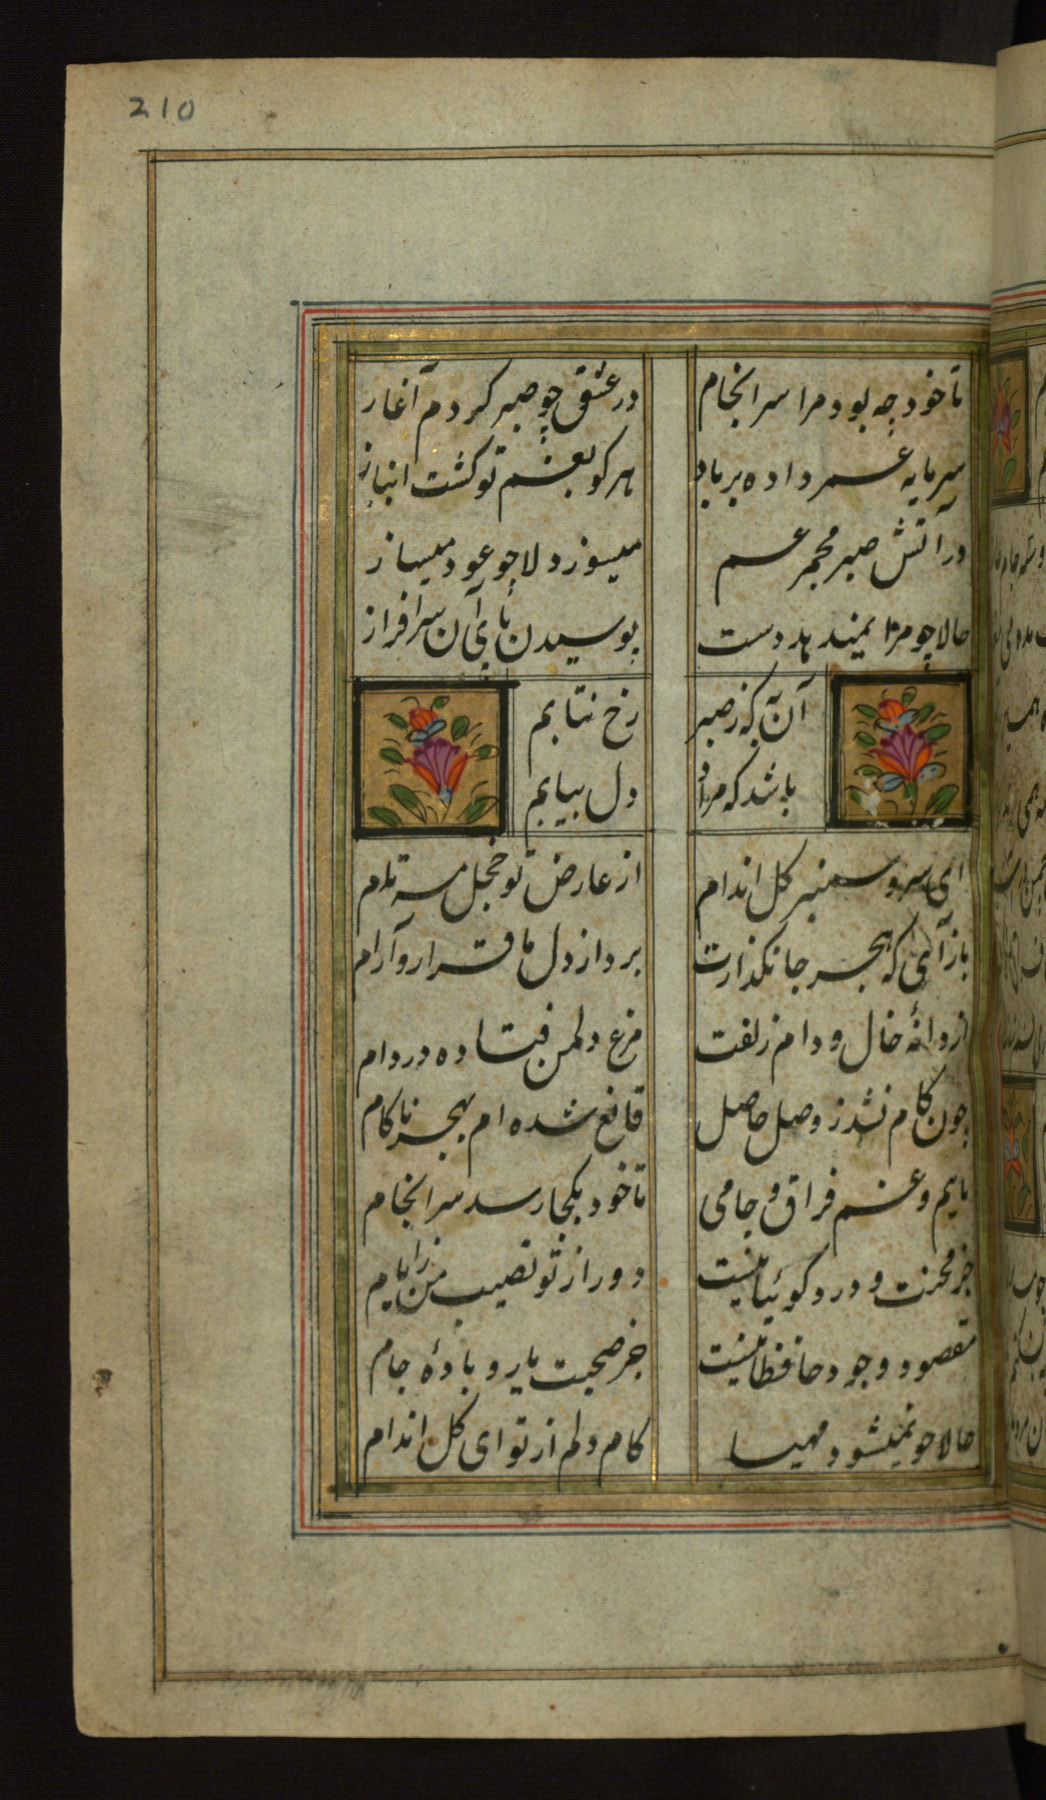 210
تا خود چه بود مرا سرانجام در عشق چو صبر کردم آغاز
سرمایه عمر داده بر باد هر کو بغم تو گشت انباز
در آتش صبر مجمر غم میسوز دلا چو عود میساز
حالا چو مرا نمیدهد دست بوسیدن پای آن سرافراز
آن به که ز صبر رخ نتابم
باشد که مراد دل بیابم
ای سرو سمنبر گل اندام از عارض تو خجل مه تمام
باز آی که هجر جانگدازت برد از دل ما قرار و آرام
از دانهٔ خال و دام زلفت مرغ دلمن فتاده در دام
چون کام نشد ز وصل حاصل قانع شده ام بهجر ناکام
مایم و غم فراق و جامی تا خود بکجا رسد سرانجام
جز محنت و درد گوئیا نیست دور از تو نصیب من ز ایام
مقصود وجود حافظا نیست جز صحبت یار و بادهٔ جام
حالا چو نمیشود مهیا کام دلم از تو ای گل اندام